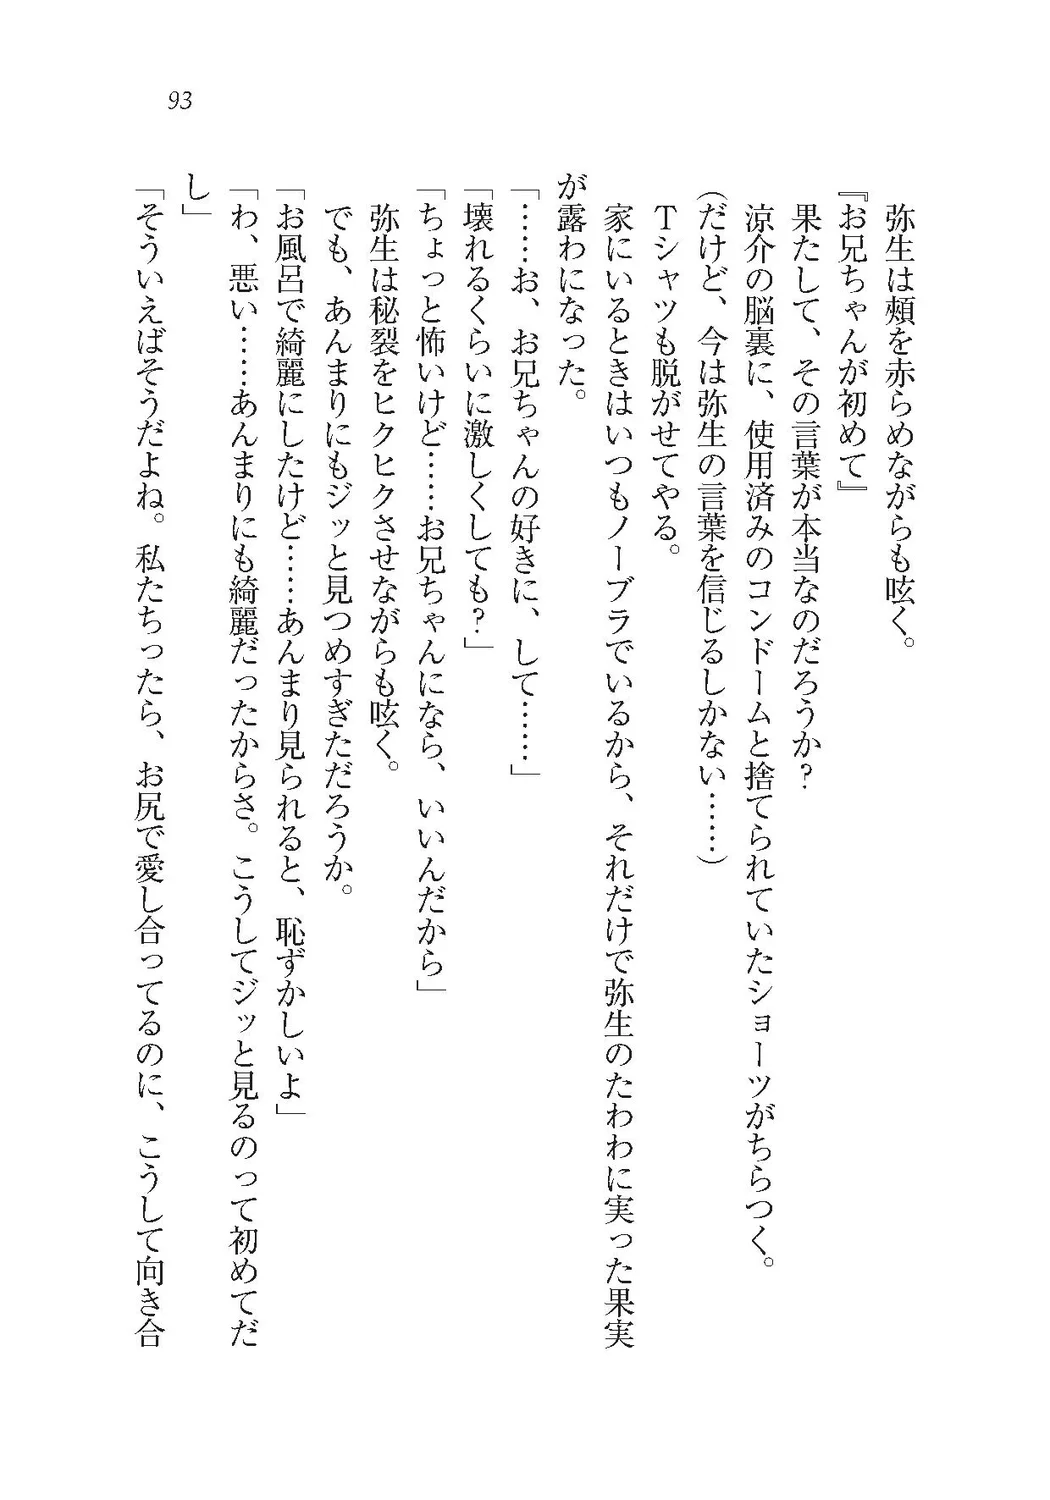 93
弥生は頰を赤らめながらも呟く。
『お兄ちゃんが初めて』
果たして、その言葉が本当なのだろうか?
涼介の脳裏に、使用済みのコンドームと捨てられていたショーツがちらつく。
(だけど、今は弥生の言葉を信じるしかない……)
Tシャツも脱がせてやる。
家にいるときはいつもノーブラでいるから、それだけで弥生のたわわに実った果実
が露わになった。
「……お、お兄ちゃんの好きに、して……」
「壊れるくらいに激しくしても?」
「ちょっと怖いけど……お兄ちゃんになら、いいんだから」
弥生は秘裂をヒクヒクさせながらも呟く。
でも、あんまりにもジッと見つめすぎただろうか。
「お風呂で綺麗にしたけど……あんまり見られると、恥ずかしいよ」
「わ、悪い……あんまりにも綺麗だったからさ。こうしてジッと見るのって初めてだ
し」
「そういえばそうだよね。私たちったら、お尻で愛し合ってるのに、こうして向き合